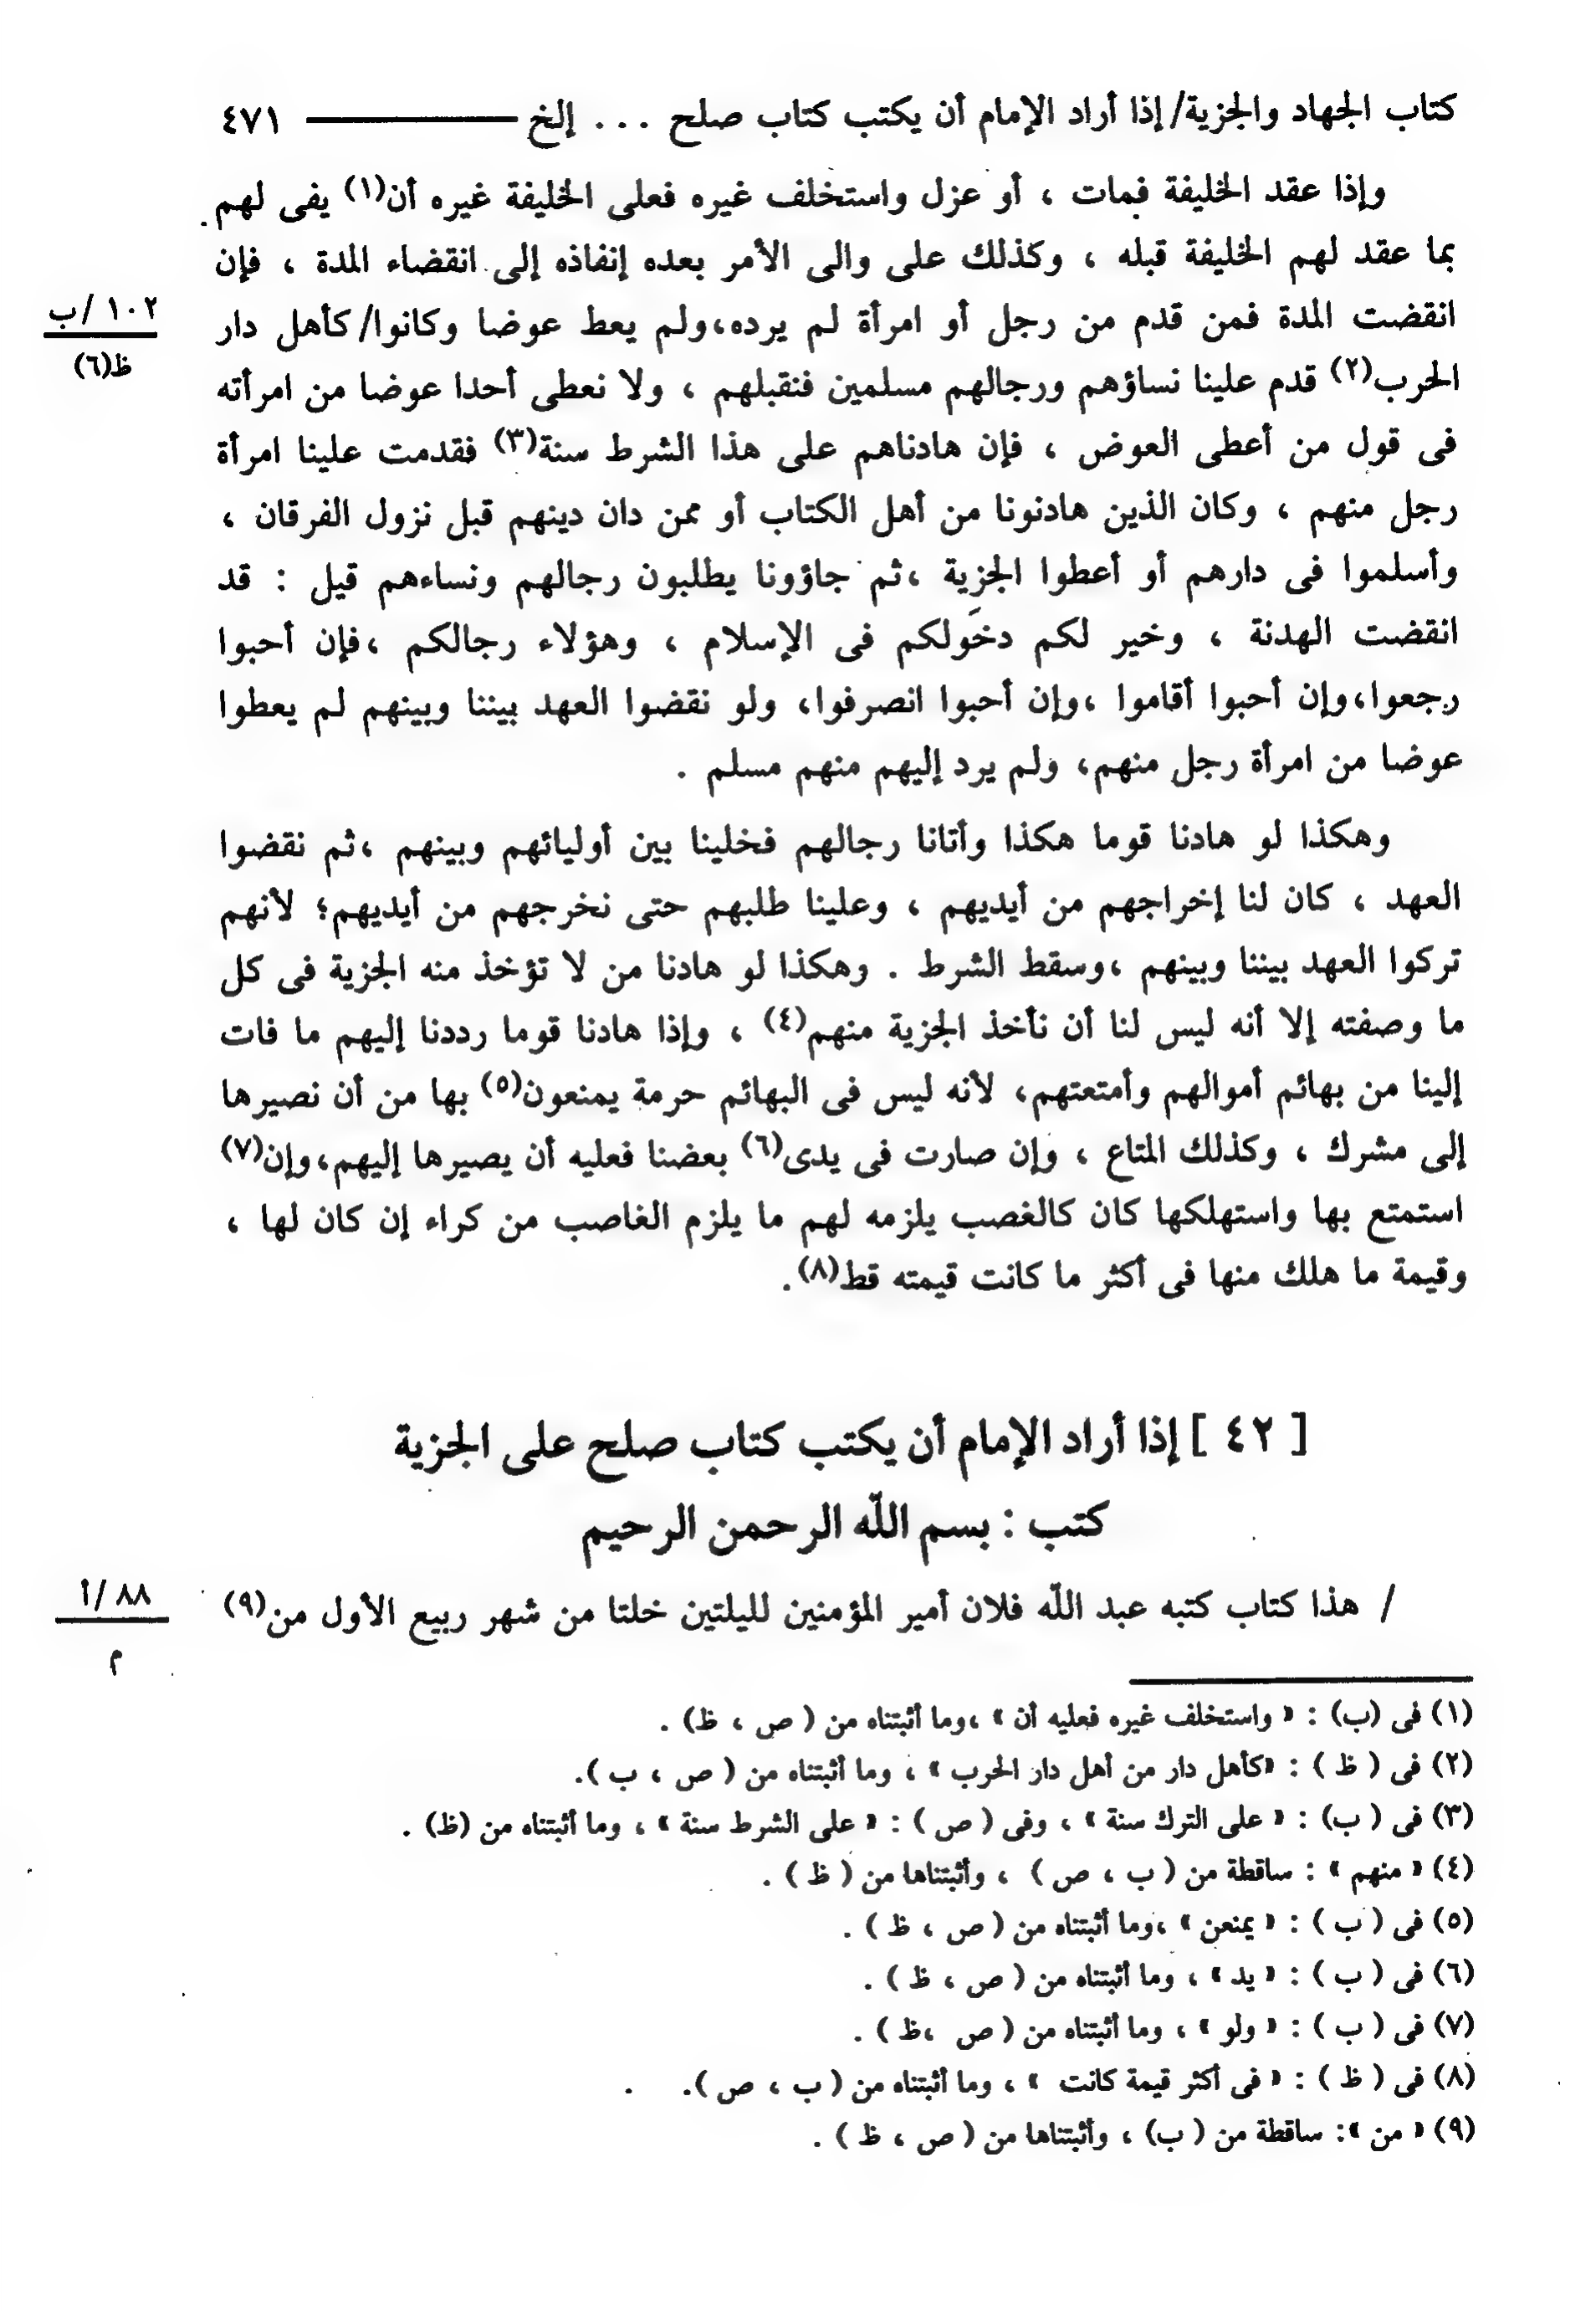 كتاب الجهاد والجزية/ إذا أراد الإمام أن يكتب كتاب صلح . . . إلخ ــــــــــــ ٤٧١
وإذا عقد الخليفة فمات ، أو عزل واستخلف غيره فعلى الخليفة غيره أن(١) يفى لهم
بما عقد لهم الخليفة قبله ، وكذلك على والى الأمر بعده إنفاذه إلى انقضاء المدة ، فإن
انقضت المدة فمن قدم من رجل أو امرأة لم يرده،ولم يعط عوضا وكانوا/ كأهل دار
١٠٢ /ب
ظ(٦)
الحرب(٢) قدم علينا نساؤهم ورجالهم مسلمين فنقبلهم ، ولا نعطى أحدا عوضا من امرأته
فى قول من أعطى العوض ، فإن هادناهم على هذا الشرط سنة(٣) فقدمت علينا امرأة
رجل منهم ، وكان الذين هادنونا من أهل الكتاب أو ممن دان دينهم قبل نزول الفرقان ،
وأسلموا فى دارهم أو أعطوا الجزية ،ثم جاؤونا يطلبون رجالهم ونساءهم قيل : قد
انقضت الهدنة ، وخير لكم دخولكم فى الإسلام ، وهؤلاء رجالكم ،فإن أحبوا
رجعوا،وإن أحبوا أقاموا ،وإن أحبوا انصرفوا، ولو نقضوا العهد بيننا وبينهم لم يعطوا
عوضا من امرأة رجل منهم، ولم يرد إليهم منهم مسلم .
وهكذا لو هادنا قوما هكذا وأتانا رجالهم فخلينا بين أوليائهم وبينهم ،ثم نقضوا
العهد ، كان لنا إخراجهم من أيديهم ، وعلينا طلبهم حتى نخرجهم من أيديهم؛ لأنهم
تركوا العهد بيننا وبينهم ،وسقط الشرط . وهكذا لو هادنا من لا تؤخذ منه الجزية فى كل
ما وصفته إلا أنه ليس لنا أن نأخذ الجزية منهم(٤) ، وإذا هادنا قوما رددنا إليهم ما فات
إلينا من بهائم أموالهم وأمتعتهم، لأنه ليس فى البهائم حرمة يمنعون(٥) بها من أن نصيرها
إلى مشرك ، وكذلك المتاع ، وإن صارت فى يدى(٦) بعضنا فعليه أن يصيرها إليهم،وإن(٧)
استمتع بها واستهلكها كان كالغصب يلزمه لهم ما يلزم الغاصب من كراء إن كان لها ،
وقيمة ما هلك منها فى أكثر ما كانت قيمته قط(٨).
[ ٤٢ ] إذا أراد الإمام أن يكتب كتاب صلح على الجزية
كتب : بسم اللّه الرحمن الرحيم
/ هذا كتاب كتبه عبد اللّه فلان أمير المؤمنين لليلتين خلتا من شهر ربيع الأول من(٩)
٨٨ /أ
م
(١) فى (ب) : « واستخلف غيره فعليه أن » ،وما أثبتناه من ( ص ، ظ) .
(٢) فى ( ظ ) : «كأهل دار من أهل دار الحرب » ، وما أثبتناه من ( ص ، ب ).
(٣) فى ( ب) : « على الترك سنة » ، وفى ( ص ) : « على الشرط سنة » ، وما أثبتناه من (ظ) .
(٤) « منهم » : ساقطة من ( ب ، ص ) ، وأثبتناها من ( ظ ) .
(٥) فى ( ب ) : « يمنعن » ،وما أثبتناه من ( ص ، ظ ) .
(٦) فى ( ب ) : « يد » ، وما أثبتناه من ( ص ، ظ ) .
(٧) فى ( ب ) : « ولو » ، وما أثبتناه من ( ص ،ظ ) .
(٨) فى ( ظ ) : « فى أكثر قيمة كانت » ، وما أثبتناه من ( ب ، ص ).
(٩) « من »: ساقطة من ( ب) ، وأثبتناها من ( ص ، ظ ) .